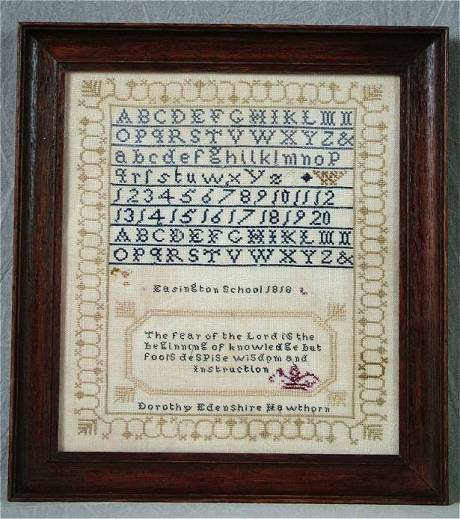 A B C D E F G H I K L M N
O P Q R S T V W X Y Z &
a b c d e f g h i l k l m n o p
q r ſ s t u w x y z
1 2 3 4 5 6 7 8 9 10 11 12
13 14 15 16 17 18 19 20
A B C D E F G H I K L M N
O P Q R S T V W X Y Z &
Easington School 1818
The fear of the Lord is the
beginning of knowledge but
fools despise wisdom and
instruction
Dorothy Edenshire Hawthorn